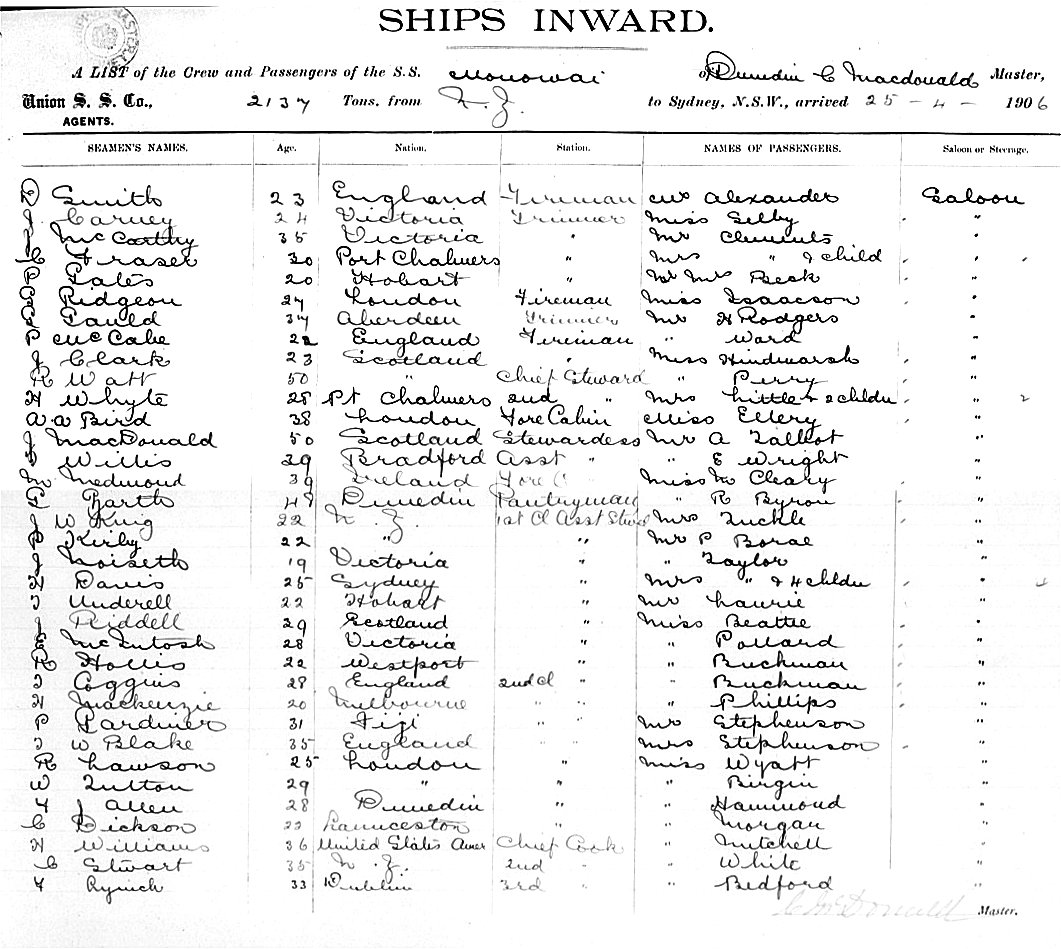 SHIPS INWARD.
A LIST of the Crew and Passengers of the S.S. Monowai of Dunedin C Macdonald Master,
Union S. S. Co., 2137 Tons. from N. Z. to Sydney, N.S.W., arrived 25 - 4 - 1906
AGENTS.
SEAMEN'S NAMES. Age. Nation. Station. NAMES OF PASSENGERS. Saloon or Steerage.
D Smith 23 England Fireman Mr Alexander Saloon
J Carney 24 Victoria Trimmer Miss Selby "
McCarthy 35 Victoria " Mr Clements "
C Fraser 30 Port Chalmers " Mrs " & child "
Fates 20 Hobart " Mr Mrs Beck "
Ridgeon 27 London Fireman Miss Isaacson "
Fauld 37 Aberdeen Trimmer Mr H Rodgers "
P McCabe 22 England Fireman " Ward "
J Clark 23 Scotland " Miss Hindmarsh "
R Watt 50 " Chief Steward " Perry "
H Whyte 28 Pt Chalmers 2nd " Mrs Little & 2 childn " 2
A W Bird 38 London Fore Cabin Miss Ellery "
J MacDonald 50 Scotland Stewardess Mr A Talbot "
Willis 39 Bradford Asst " " E Wright "
M Medmond 39 Ireland Fore C Miss M Cleary "
Barth 48 Dunedin Pantryman " R Byron "
J W King 22 N. Z. 1st Cl Asst Stwd Mrs Tuckle "
Kirby 22 " " Mr P Borae "
J Noiseth 19 Victoria " " Taylor "
H Davis 25 Sydney " Mrs " & 4 childn " 4
T Underell 22 Hobart " Mr Laurie "
J Riddell 29 Scotland " Miss Beattie "
McIntosh 28 Victoria " " Pollard "
R Hollis 22 Westport " " Buckman "
T Coggins 28 England 2nd Cl " " Buckman "
H Mackenzie 20 Melbourne " " " Phillips "
P Gardiner 31 Fiji " " Mr Stephenson "
T W Blake 35 England " " Mrs Stephenson "
R Lawson 25 London " Miss Wyatt "
W Tutton 29 " " " Birgin "
F J Allen 28 Dunedin " " Hammond "
C Dickson 22 Launceston " " Morgan "
H Williams 36 United States Amer Chief Cook " Mitchell "
C Stewart 35 N. Z. 2nd " " White "
F Rynich 33 Dublin 3rd " " Bedford "
C McDonald Master.